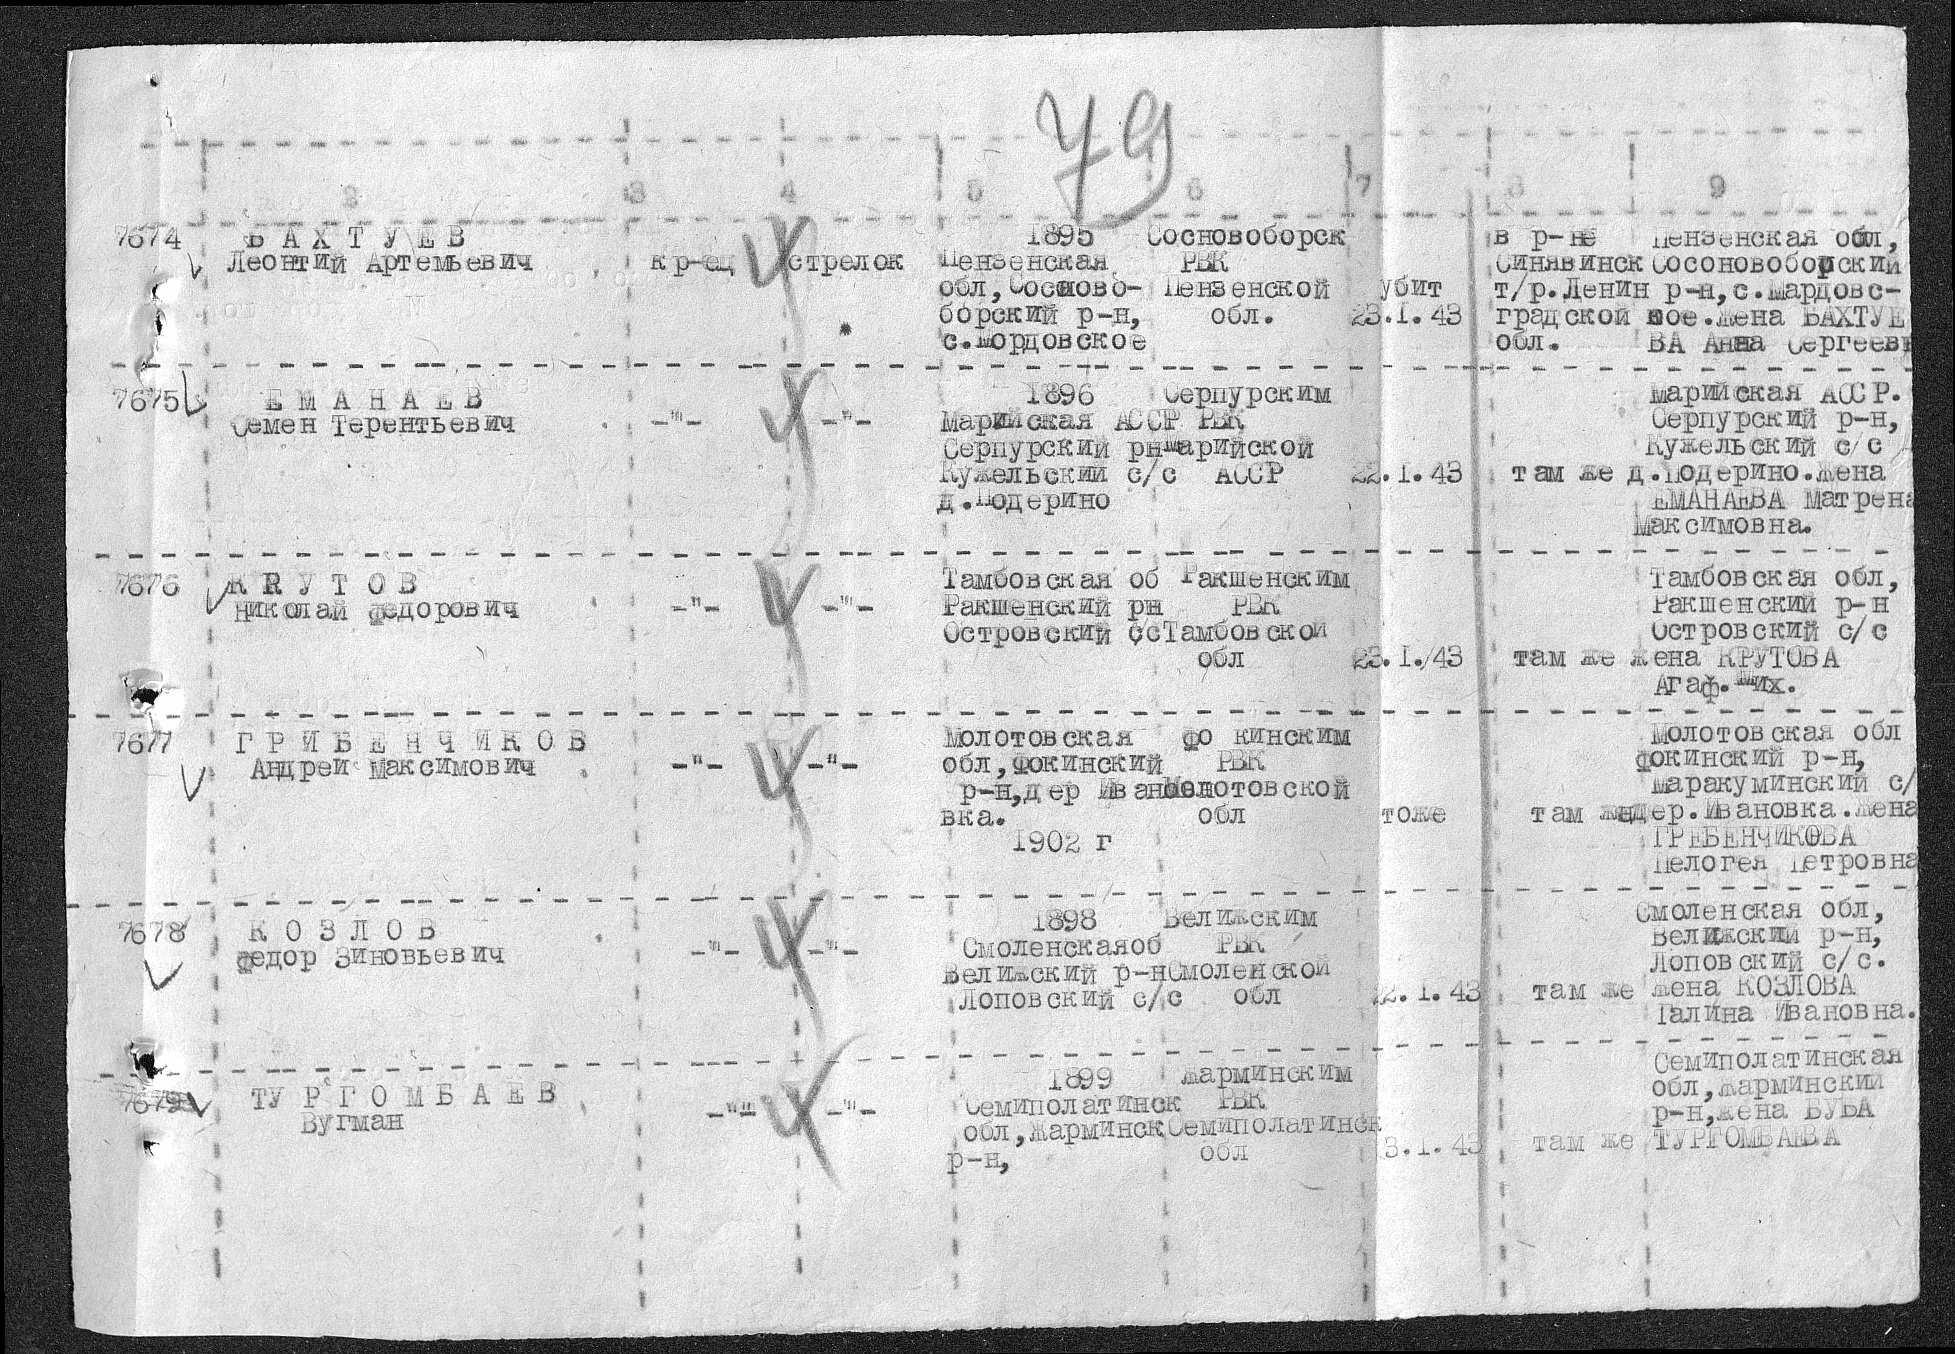 79
2 3 4 5 6 7 8 9
7674 БАХТУЕВ
Леонтий Артемьевич
кр-ец
стрелок
1895
Пензенская
обл, Сосново-
борский р-н,
с.Мордовское
Сосновоборск
РВК
Пензенской
обл.
убит
23.1.43
в р-не
Синявинск
т/р.Ленин
градской
обл.
Пензенская обл,
Сосоновоборский
р-н,с.Мардовс-
кое.жена БАХТУЕ
ВА Анна Сергеевн
7675 ЕМАНАЕВ
Семен Терентьевич
-"-
-"-
1896
Марийская АССР
Серпурский рн
Кужельский с/с
д.Подерино
Серпурским
РВК
марийской
АССР
22.1.43
там же
Марийская АССР.
Серпурский р-н,
Кужельский с/с
д.Подерино.жена
ЕМАНАЕВА Матрена
Максимовна.
7676 КРУТОВ
Николай Федорович
-"-
-"-
Тамбовская об
Ракшенский рн
Островский с/с
Ракшенским
РВК
Тамбовской
обл
23.1./43
там же
Тамбовская обл,
Ракшенский р-н
Островский с/с
жена КРУТОВА
Агаф.Мих.
7677 ГРИБЕНЧИКОВ
Андрей Максимович
-"-
-"-
Молотовская
обл,Фокинский
р-н,дер Ивано
вка.
1902 г
Фо кинским
РВК
Молотовской
обл
тоже
там же
Молотовская обл
Фокинский р-н,
Маракуминский с/
дер.Ивановка.жена
ГРЕБЕНЧИКОВА
Пелогея Петровна
7678 КОЗЛОВ
Федор Зиновьевич
-"-
-"-
1898
Смоленскаяоб
Велижский р-н
Лоповский с/с
Велижским
РВК
Смоленской
обл
22.1.43
там же
Смоленская обл,
Велижский р-н,
Лоповский с/с.
жена КОЗЛОВА
Галина Ивановна.
7679 ТУРГОМБАЕВ
Вугман
-"-
-"-
1899
Семиполатинск
обл,Жарминск
р-н,
Жарминским
РВК
Семиполатинск
обл
3.1.43
там же
Семиполатинская
обл,Жарминский
р-н,жена БУБА
ТУРГОМБАЕВА